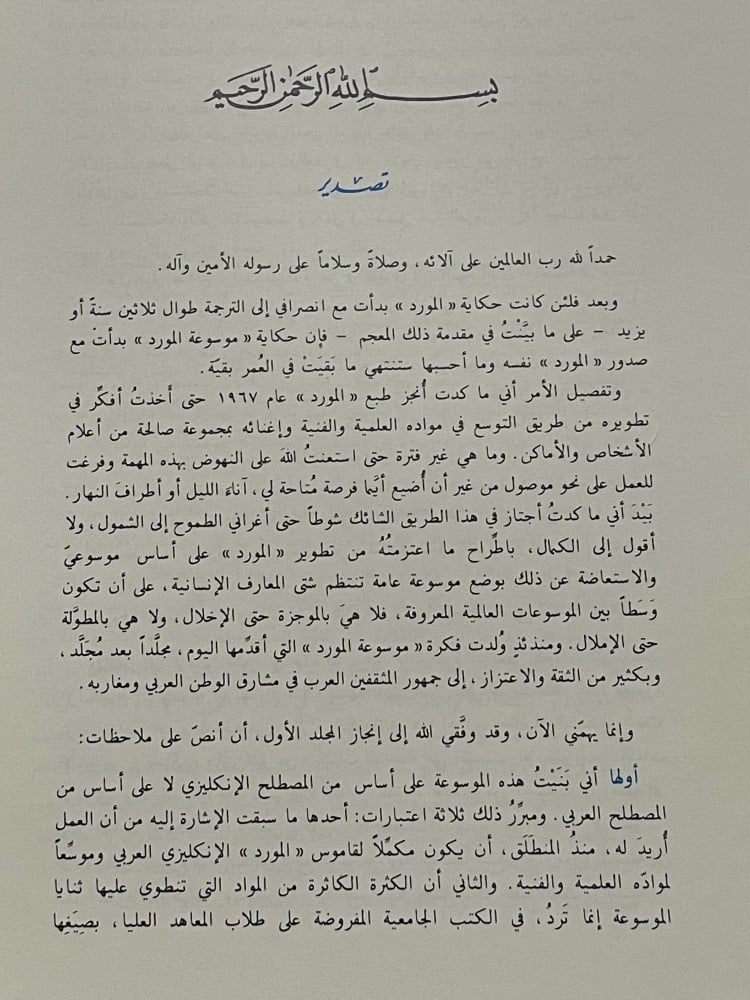 بسم الله الرحمن الرحيم
تصدير
حمداً لله رب العالمين على آلائه، وصلاةً وسلاماً على رسوله الأمين وآله.
وبعد فلئن كانت حكاية «المورد» بدأت مع انصرافي إلى الترجمة طوال ثلاثين سنةً أو
يزيد – على ما بيَّنْتُ في مقدمة ذلك المعجم – فإن حكاية «موسوعة المورد» بدأتْ مع
صدور «المورد» نفسه وما أحسبها ستنتهي ما بَقِيَتْ في العُمر بقيّة.
وتفصيل الأمر أني ما كدت أُنجز طبع «المورد» عام ١٩٦٧ حتى أَخذتُ أفكِّر في
تطويره من طريق التوسع في مواده العلمية والفنية وإغنائه بمجموعة صالحة من أعلام
الأشخاص والأماكن. وما هي غير فترة حتى استعنتُ اللهَ على النهوض بهذه المهمة وفرغت
للعمل على نحو موصول من غير أن أُضيع أيَّما فرصة مُتاحة لي، آناءَ الليل أو أطرافَ النهار.
بَيْدَ أني ما كدتُ أجتاز في هذا الطريق الشائك شوطاً حتى أغراني الطموح إلى الشمول، ولا
أقول إلى الكمال، باطِّراح ما اعتزمتُهُ من تطوير «المورد» على أساس موسوعيّ
والاستعاضة عن ذلك بوضع موسوعة عامة تنتظم شتى المعارف الإنسانية، على أن تكون
وَسَطاً بين الموسوعات العالمية المعروفة، فلا هيَ بالموجزة حتى الإخلال، ولا هي بالمطوَّلة
حتى الإملال. ومنذئذٍ وُلدت فكرة «موسوعة المورد» التي أقدِّمها اليوم، مجلَّداً بعد مُجَلَّد،
وبكثير من الثقة والاعتزاز، إلى جمهور المثقفين العرب في مشارق الوطن العربي ومغاربه.
وإنما يهمّني الآن، وقد وفَّقني الله إلى إنجاز المجلد الأول، أن أنصّ على ملاحظات:
أولها أني بَنَيْتُ هذه الموسوعة على أساس من المصطلح الإنكليزي لا على أساس من
المصطلح العربي. ومبرِّرُ ذلك ثلاثة اعتبارات: أحدها ما سبقت الإشارة إليه من أن العمل
أُريدَ له، منذُ المنطلَق، أن يكون مكمِّلاً لقاموس «المورد» الإنكليزي العربي وموسِّعاً
لموادّه العلمية والفنية. والثاني أن الكثرة الكاثرة من المواد التي تنطوي عليها ثنايا
الموسوعة إنما تَردُ، في الكتب الجامعية المفروضة على طلاب المعاهد العليا، بصِيَغِها